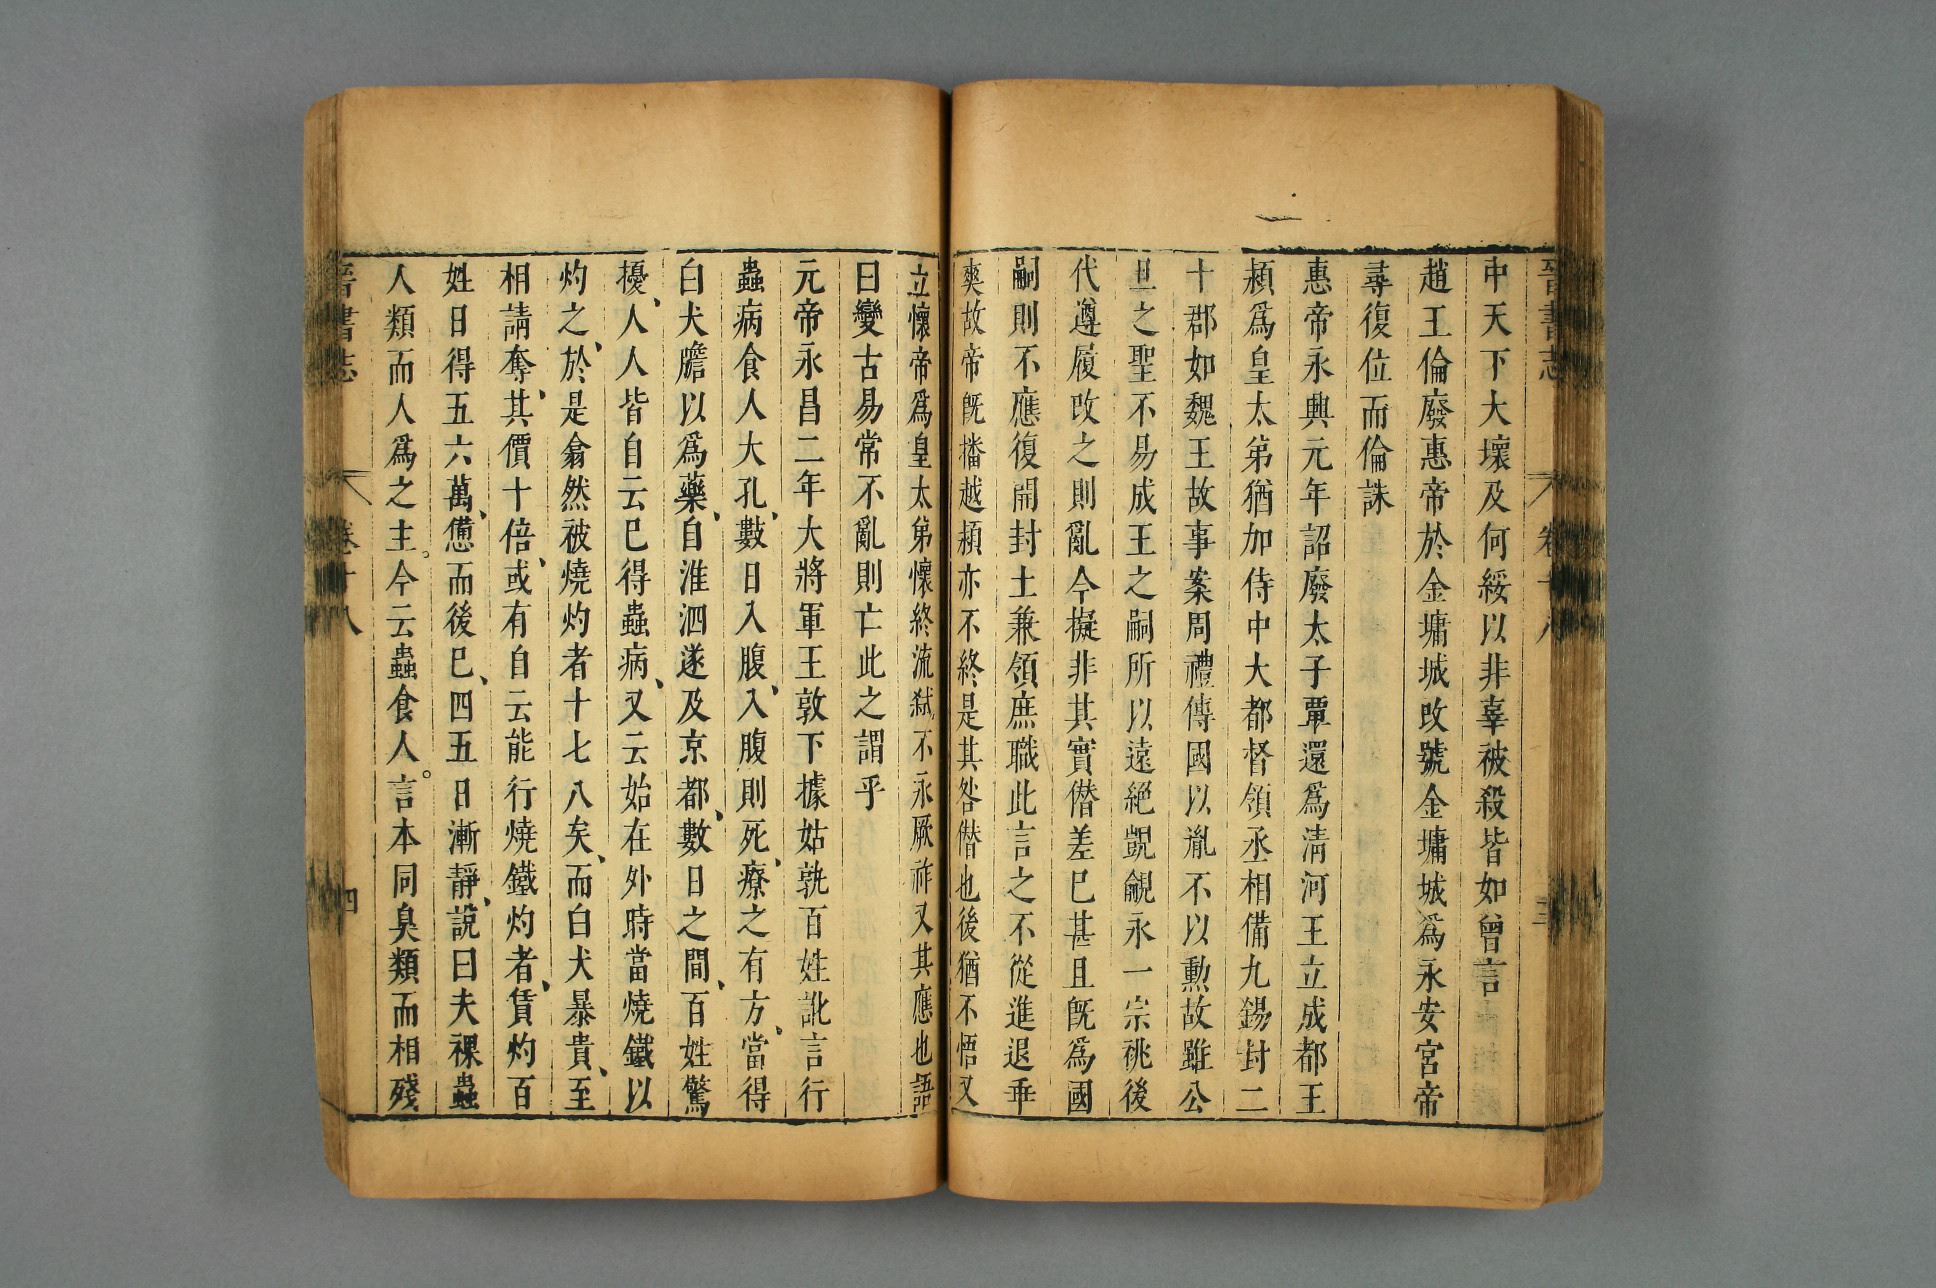 中天下大壞及何綏以非辜被殺皆如曾言
趙王倫廢惠帝於金墉城改號金墉城爲永安宮帝
尋復位而倫誅
惠帝永興元年詔廢太子覃還爲淸河王立成都王
穎爲皇太弟猶加侍中大都督領丞相備九錫封二
十郡如魏王故事案周禮傳國以胤不以勲故雖公
旦之聖不易成王之嗣所以遠絕覬覦永一宗祧後
代遵履改之則亂今擬非其實僭差已甚且旣爲國
嗣則不應復開封土兼領庶職此言之不從進退乖
爽故帝旣播越穎亦不終是其咎僭也後猶不悟又
立懷帝爲皇太弟懷終流弑不永厥祚又其應也語
曰變古易常不亂則亡此之謂乎
元帝永昌二年大將軍王敦下據姑孰百姓訛言行
蟲病食人大孔、數日入腹、入腹則死、療之有方、當得
白犬膽以爲藥、自淮泗遂及京都、數日之間、百姓驚
擾、人人皆自云巳得蟲病、又云始在外時當燒鐵以
灼之、於是翕然被燒灼者十七八矣、而白犬暴貴、至
相請奪、其價十倍、或有自云能行燒鐵灼者、賃灼百
姓日得五六萬、憊而後已、四五日漸靜、說曰夫裸蟲
人類而人爲之主。今云蟲食人。言本同臭類而相殘
晉書志 卷十八 三
晉書志 卷十八 四